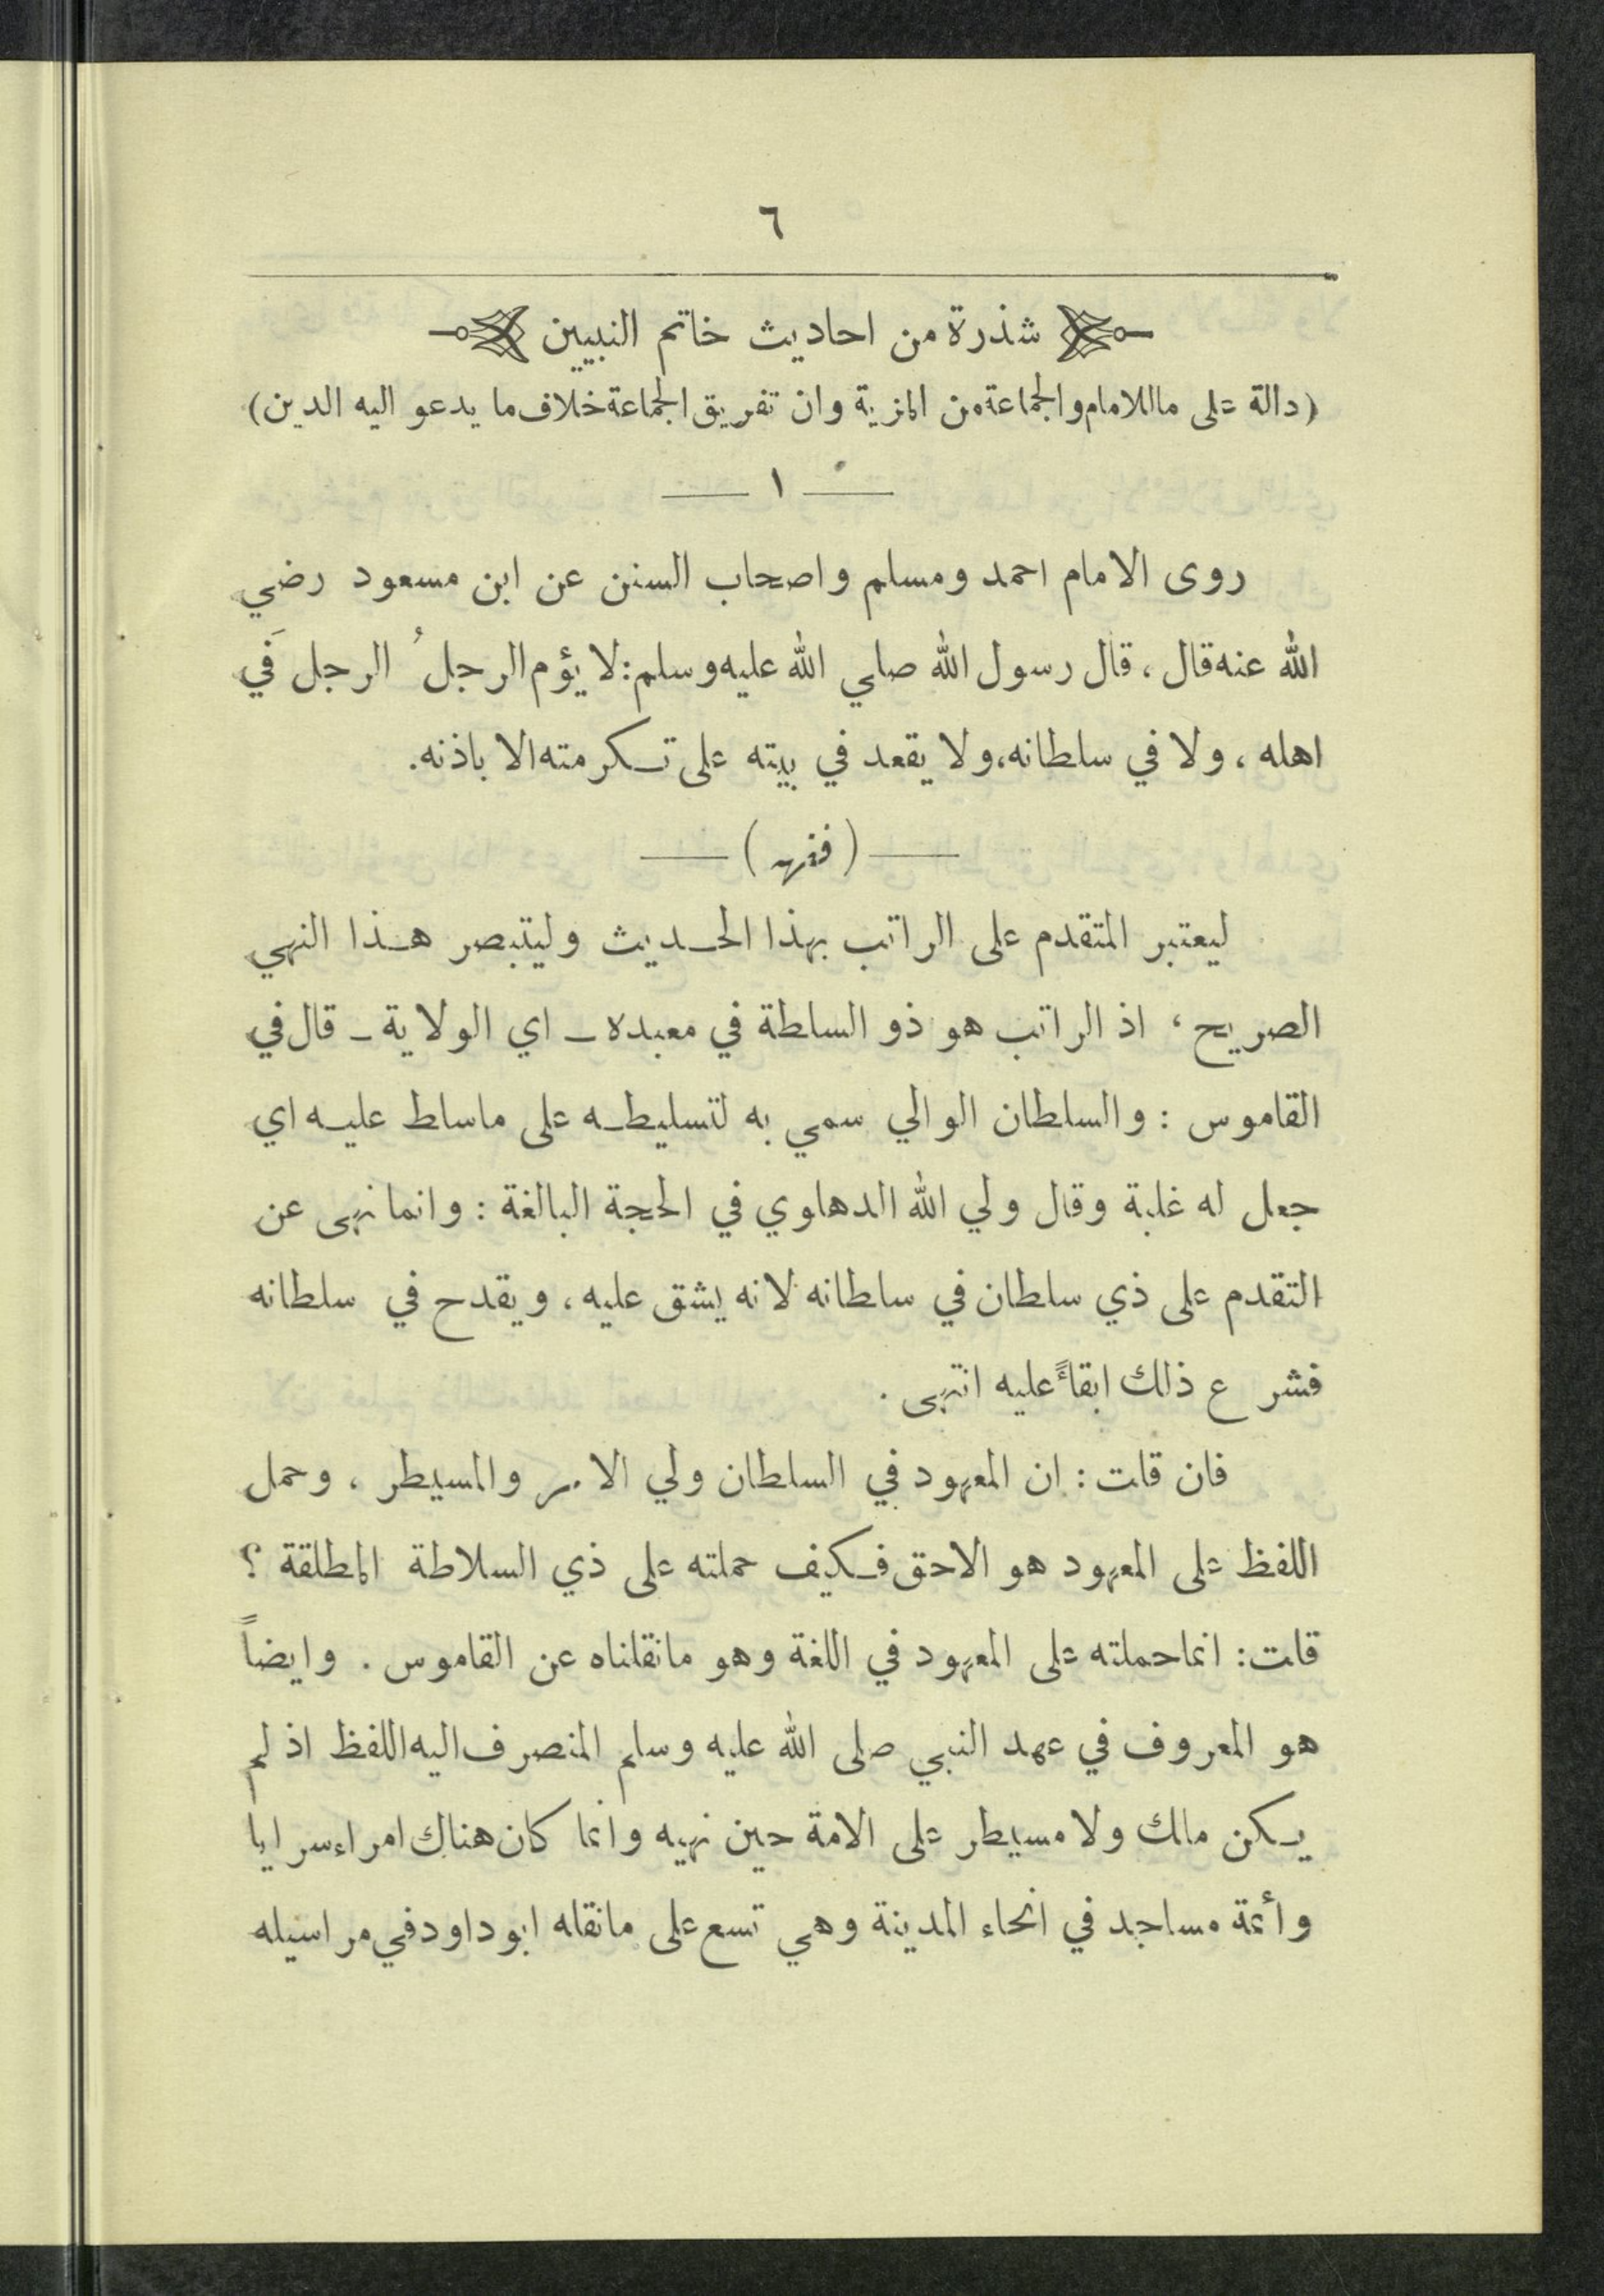 ٦
شذرة من احاديث خاتم النبيين
(دالة على ماللامام والجماعة من المزية وان تفريق الجماعة خلاف ما يدعو اليه الدين)
— ١ —
روى الامام احمد ومسلم واصحاب السنن عن ابن مسعود رضي
الله عنه قال، قال رسول الله صلي الله عليه وسلم: لا يؤم الرجلُ الرجلَ في
اهله، ولا في سلطانه، ولا يقعد في بيته على تكرمته الا باذنه.
— (فقهه) —
ليعتبر المتقدم على الراتب بهذا الحديث وليتبصر هذا النهي
الصريح، اذ الراتب هو ذو السلطة في معبده – اي الولاية – قال في
القاموس: والسلطان الوالي سمي به لتسليطه على ماسلط عليه اي
جعل له غلبة وقال ولي الله الدهلوي في الحجة البالغة: وانما نهى عن
التقدم على ذي سلطان في سلطانه لانه يشق عليه، ويقدح في سلطانه
فشرع ذلك ابقاءً عليه انتهى.
فان قلت: ان المعهود في السلطان ولي الامر والمسيطر، وحمل
اللفظ على المعهود هو الاحق فكيف حملته على ذي السلاطة المطلقة؟
قلت: انما حملته على المعهود في اللغة وهو مانقلناه عن القاموس. وايضاً
هو المعروف في عهد النبي صلى الله عليه وسلم المنصرف اليه اللفظ اذ لم
يكن مالك ولا مسيطر على الامة حين نهيه وانما كان هناك امراء سرايا
وأئمة مساجد في انحاء المدينة وهي تسع على مانقله ابو داود في مراسيله